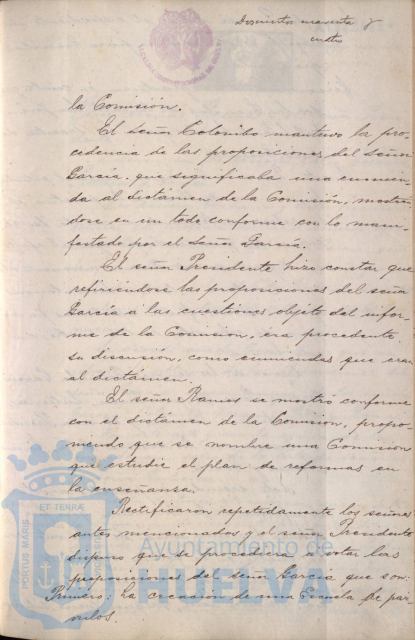 Doscientos noventa y
cuatro
la Comisión.
El Señor Colombo mantuvo la pro-
cedencia de las proposiciones del Señor
García, que significaba una enmien-
da al dictámen de la Comisión, mostrán
dose en un todo conforme con lo mani-
festado por el Señor García.
El señor Presidente hizo constar que
refiriéndose las proposiciones del señor
García á las cuestiones objeto del infor-
me de la Comision, era procedente
su discusión, como enmiendas que eran
al dictámen.
El señor Ramos se mostró conforme
con el dictámen de la Comision, propo-
niendo que se nombre una Comision
que estudie el plan de reformas en
la enseñansa.
Rectificaron repetidamente los señores
antes mencionados y el señor Presidente
dispuso que se procediese á votar las
proposiciones del señor García que son:
Primero: La creacion de una Escuela de pár-
vulos.
PORTUS MARIS
ET TERRÆ
Ayuntamiento de
HUELVA